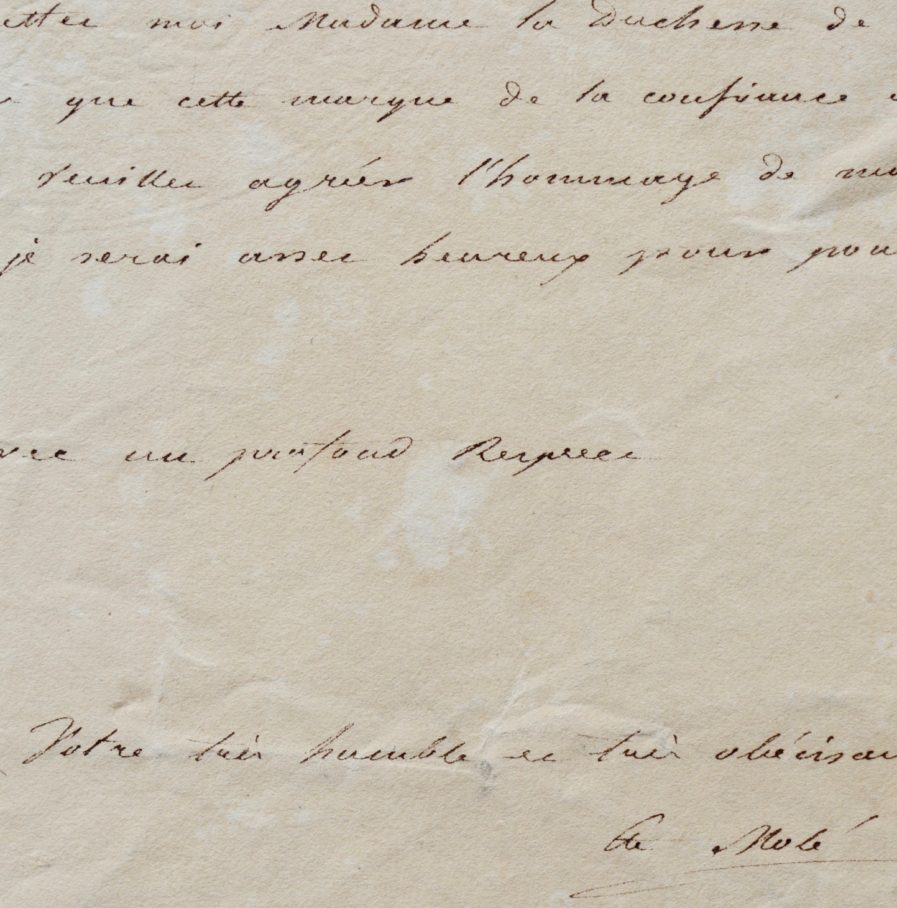 ettez moi Madame la Duchesse de
que cette marque de la confiance
veuillez agréer l'hommage de mo
je serai assez heureux pour pou
vec un profond Respect
Votre très humble et très obéissan
Cte Molé